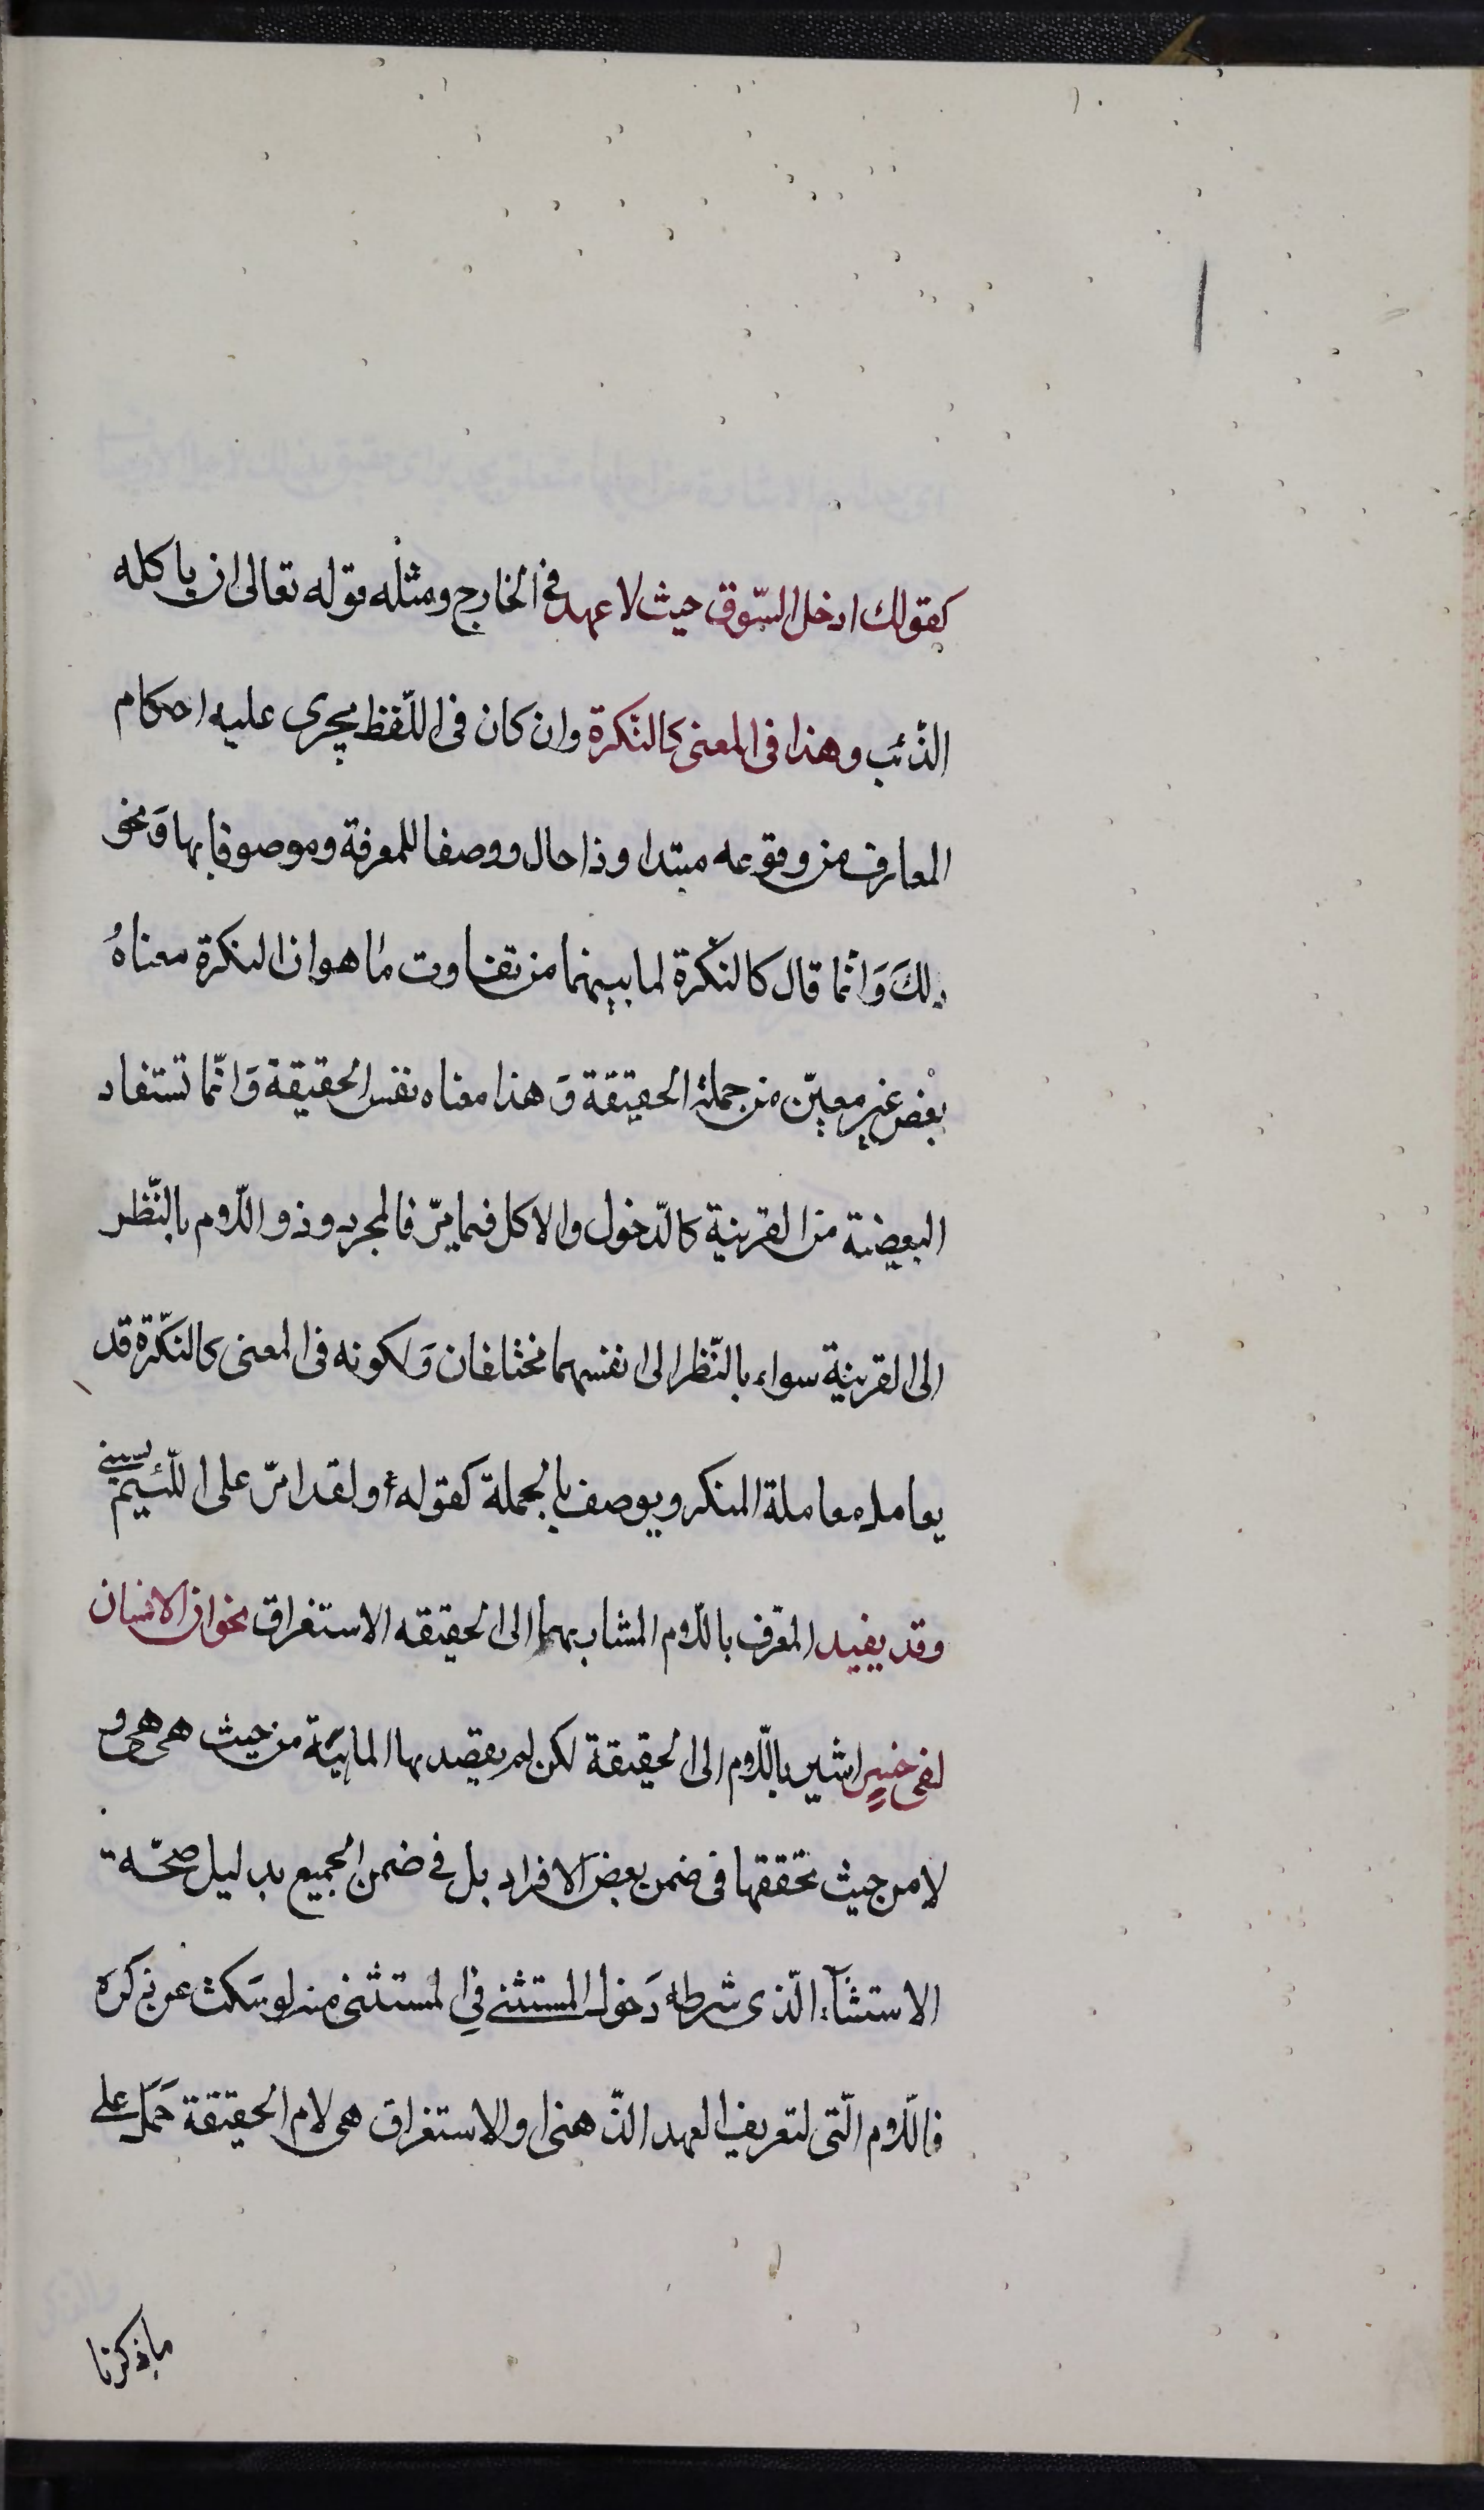 كقولك ادخل السّوق حيث لا عهد فى الخارج ومثله قوله تعالى ان ياكله
الذّئب وهذا فى المعنى كالنّكرة وان كان فى اللّفظ يجرى عليه احكام
المعارف من وقوعه مبتدا وذا حال ووصفا للمعرفة وموصوفا بها وَنحو
ذلكَ وَانّما قال كالنّكرة لما بينهما من تفاوت ما هو ان النكرة معناهُ
بعْض غير معيّن من جملة الحقيقة وَ هذا معناه نفس الحقيقة وَانّما تستفاد
البعضية من القرينة كالدّخول والاكل فيما مرّ فالمجرد وذو اللّام بالنّظر
الى القرينة سواء بالنّظر الى انفسهما مختلفان وَلكونه فى المعنى كالنّكرة قد
يعامله معاملة المنكر ويوصف بالجملة كقوله أو لقد امرّ على اللّئيم يسبنى
وقد يفيد المعّرف باللّام المشار بهما الى الحقيقه الاستغراق نحو ان الانسان
لفى خسرٍ اشير باللّام الى الحقيقة لكن لم يقصد بها الماهيّة من حيث هى هى و
لا من حيث تحققها فى ضمن بعض الافراد بل فى ضمن الجميع بدليل صحّة
الاستثناء الّذى شرطه دَخول المستثنى فى المستثنى منه لو سَكت عن ذكره
فاللّام الّتى لتعريف العهد الذّهنى او الاستغراق هى لام الحقيقة حَمَل على
ما ذكرنا